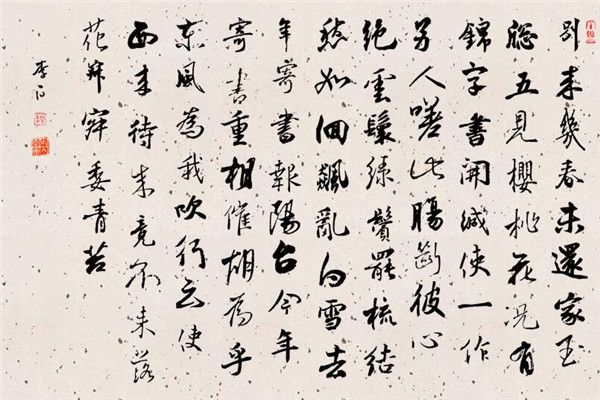 別來幾春未還家玉
窓五見櫻桃花况有
錦字書開緘使一作
令人嗟此腸斷彼心
絕雲鬟綠鬢罷梳結
愁如回飆亂白雪去
年寄書報陽台今年
寄書重相催胡為乎
東風為我吹行云使
西来待来竟不来落
花寂寂委青苔
李白